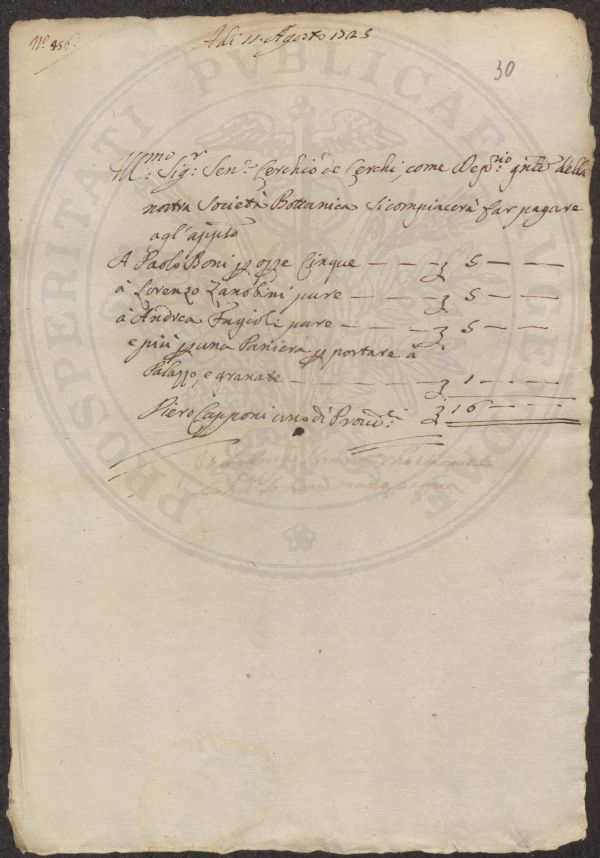 N.º 456.
Adi 11. Agosto 1725
30
Ill.mo Sig.r Sen.e Cerchio de Cerchi, come Dep.rio gnle della
nostra Società Bottanica si compiacerà far pagare
agl'app.ti
A Paolo Boni p opre Cinque — — — 5 — — —
à Lorenzo Zanobini pure — — — 5 — — —
à Andrea Fugioli pure — — — 5 — — —
e più p una Paniera p portare à
Palazzo, e granate — — — 1 — — —
Piero Capponi uno di Proved.i 16 — — —
PROSPERITATI PVBLICAE AVGENDAE